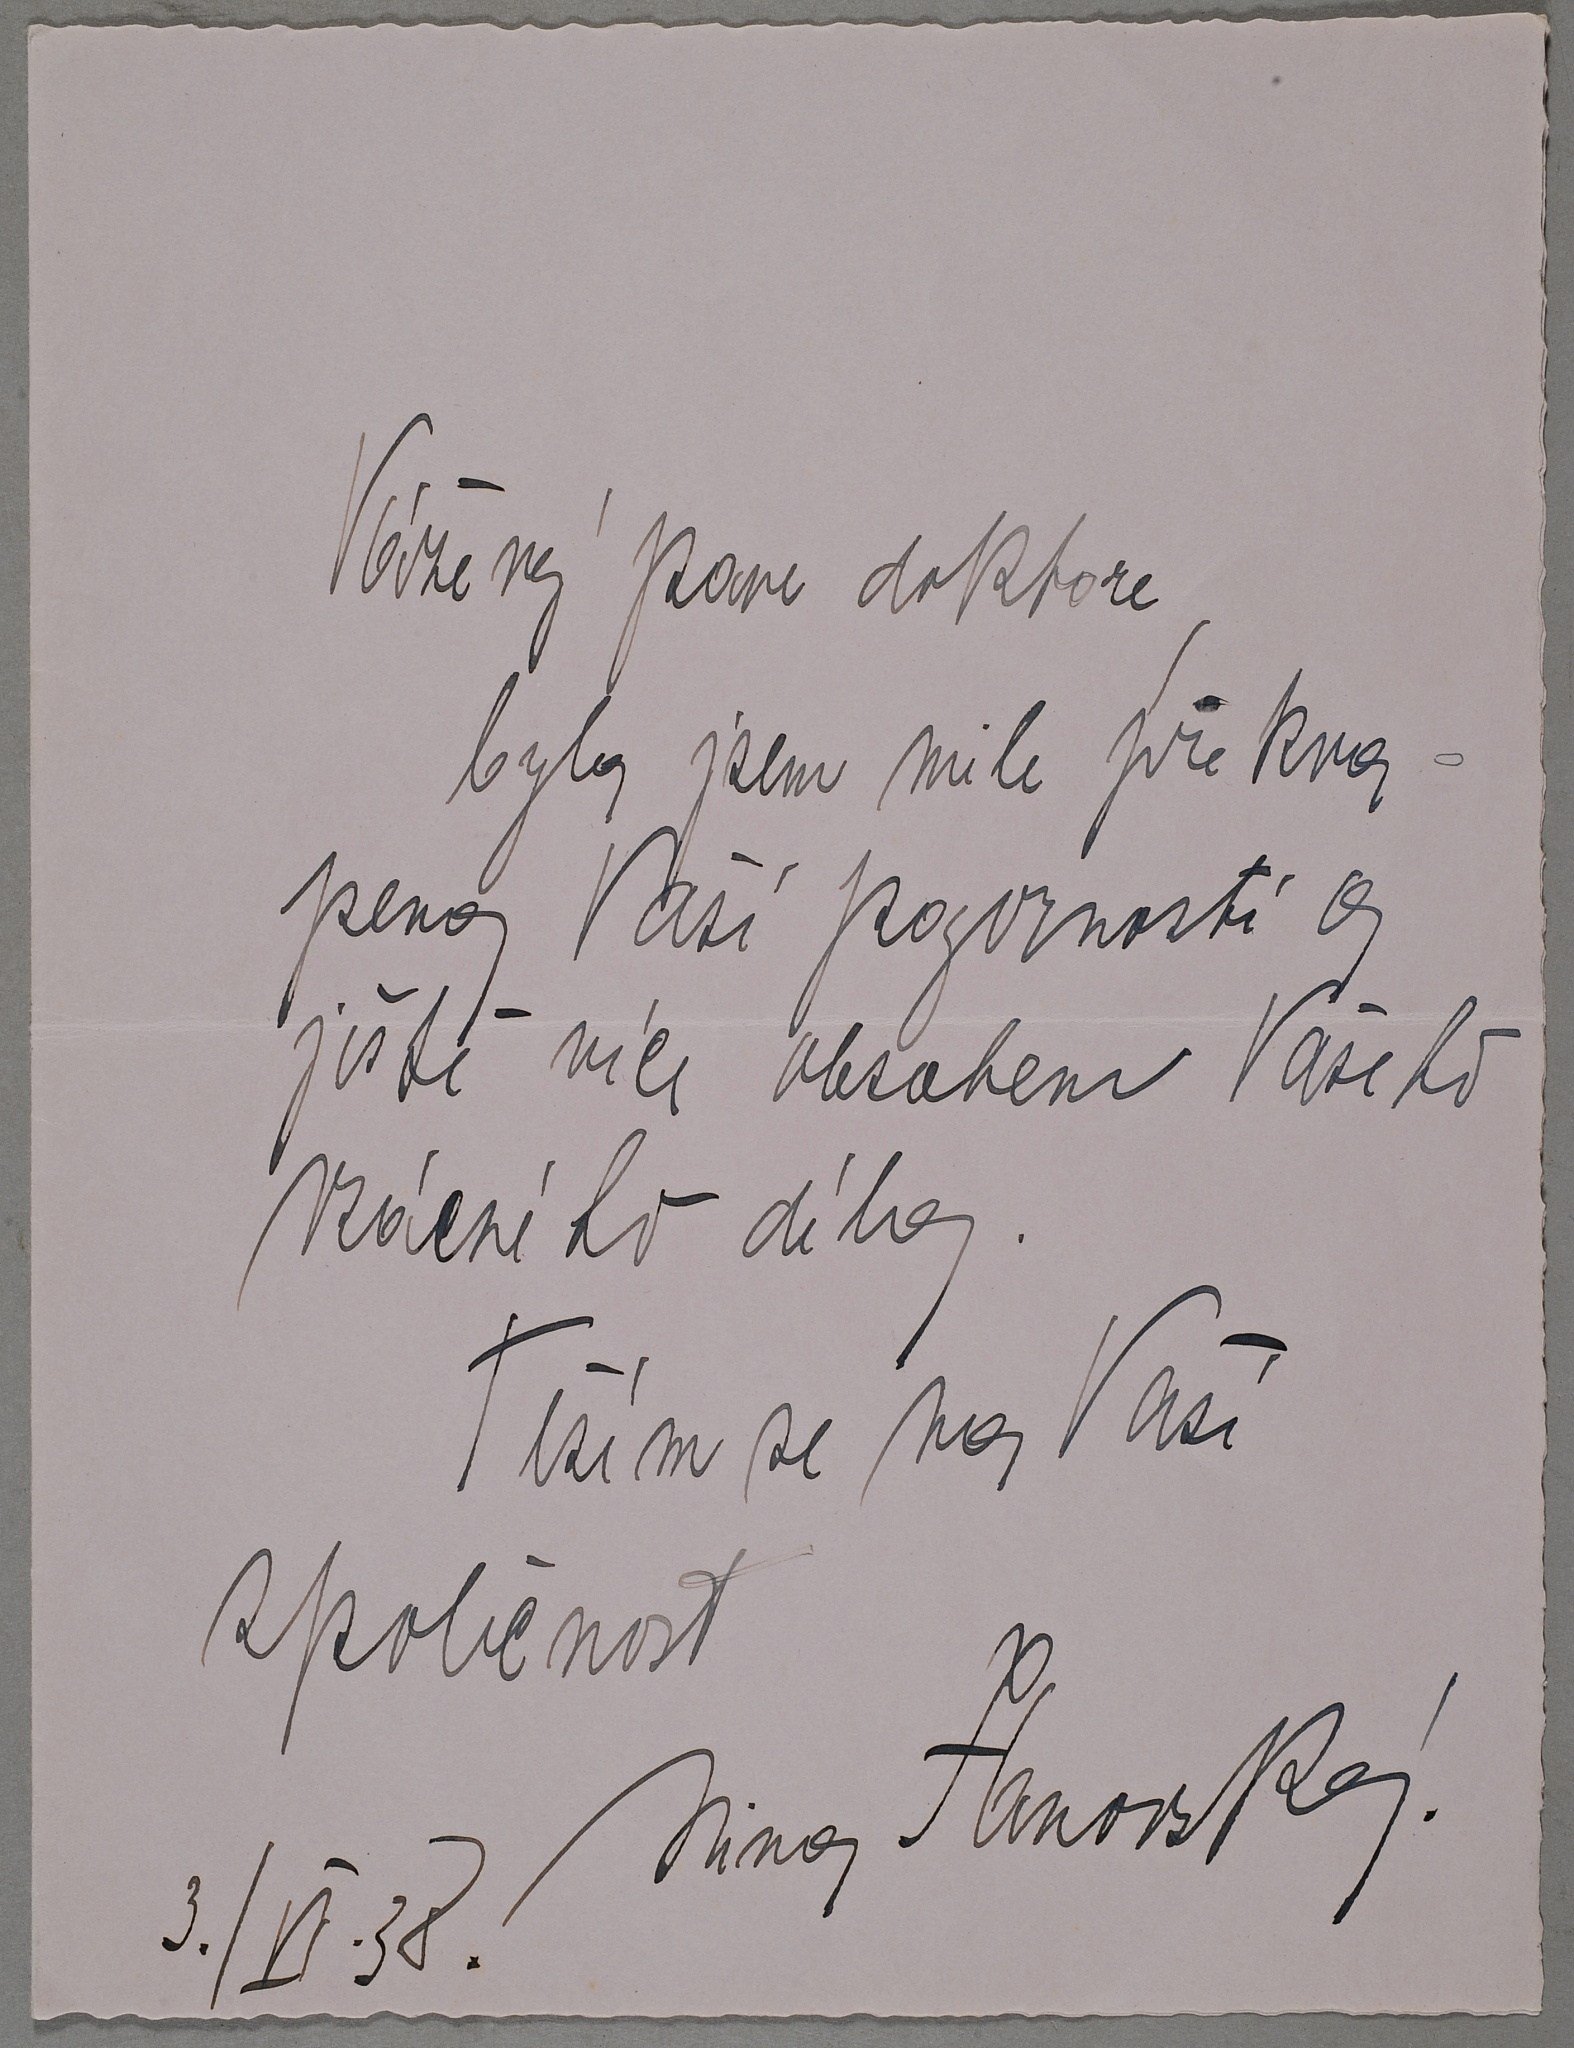 Vážený pane doktore,
byla jsem mile překva-
pena Vaší pozorností a
ještě více obsahem Vašeho
vzácného díla.
Těším se na Vaší
společnost
Nina
3./VI.38.